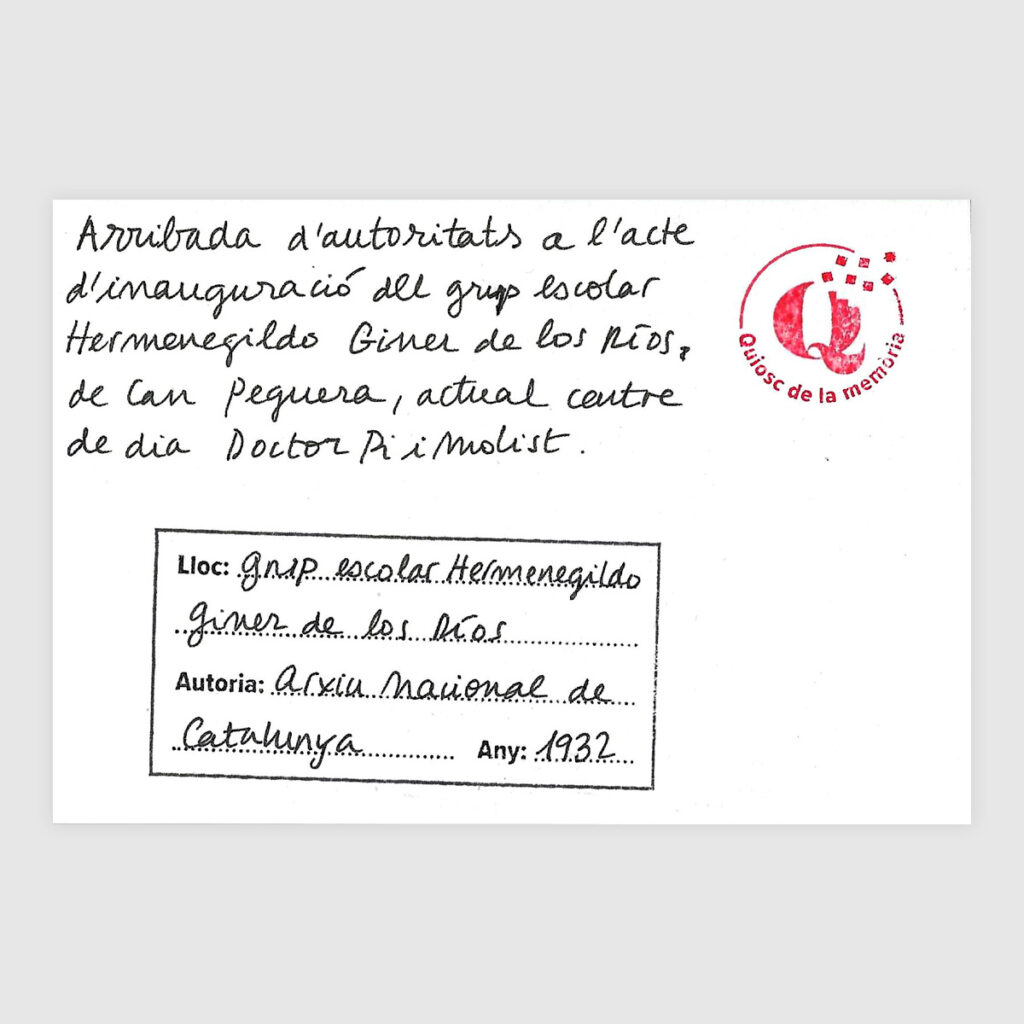 Arribada d'autoritats a l'acte
d'inauguració del grup escolar
Hermenegildo Giner de los Ríos,
de Can Peguera, actual centre
de dia Doctor Pi i Molist.
Quiosc de la memòria
Lloc: grup escolar Hermenegildo
Giner de los Ríos
Autoria: Arxiu Nacional de
Catalunya Any: 1932